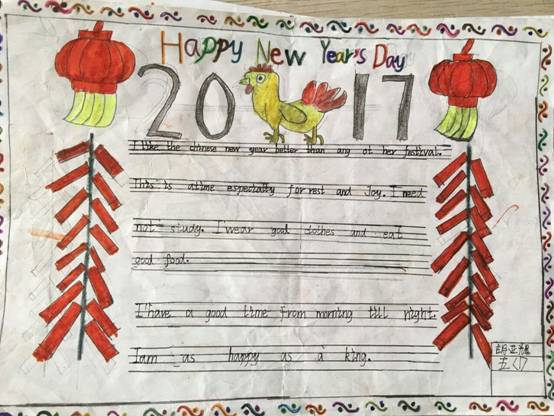 Happy New Year's Day
2017
I like the chinese new year better than any ot her festival.
This is atime especially for rest and Joy. I need
not study. I wear good clothes and eat
good food.
I have a good time from morning till night.
Iam as happy as a king.
五